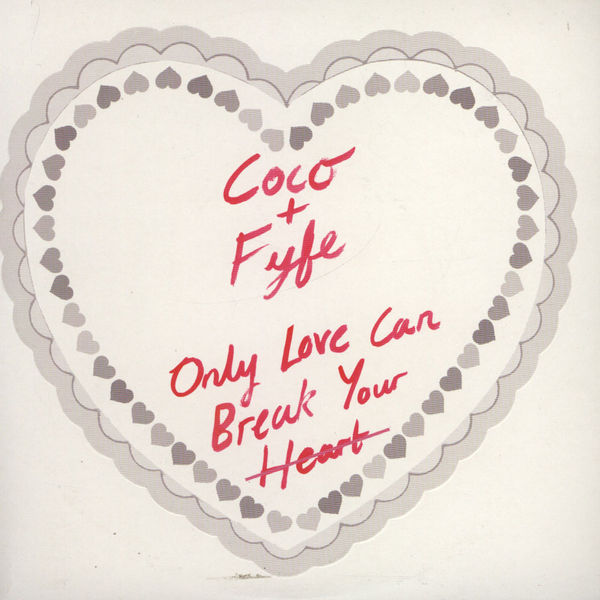 Coco
+
Fyfe
Only Love Can
Break Your
Heart